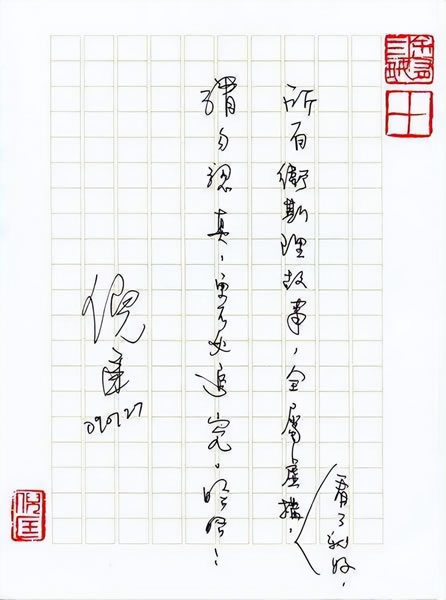 所有衛斯理故事，全屬虛構，
看了就好，
請勿認真，更不必追究。哈哈！
倪匡
090727
倪匡